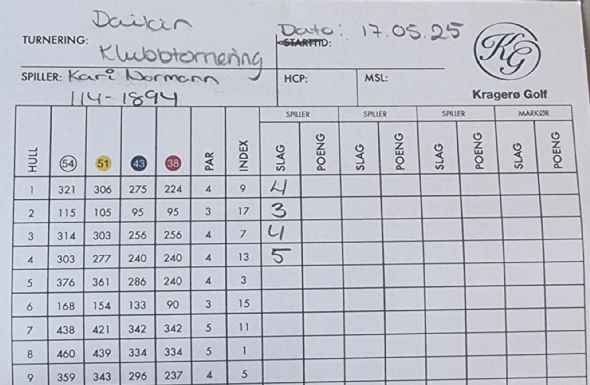 Daikin
TURNERING: Klubbturnering
Dato: 17.05.25
STARTTID:
SPILLER: Kari Normann
114-1894
HCP:
MSL:
KG
Kragerø Golf
SPILLER SPILLER SPILLER MARKØR
HULL 54 51 43 38 PAR INDEX SLAG POENG SLAG POENG SLAG POENG SLAG POENG
1 321 306 275 224 4 9 4
2 115 105 95 95 3 17 3
3 314 303 256 256 4 7 4
4 303 277 240 240 4 13 5
5 376 361 286 240 4 3
6 168 154 133 90 3 15
7 438 421 342 342 5 11
8 460 439 334 334 5 1
9 359 343 296 237 4 5